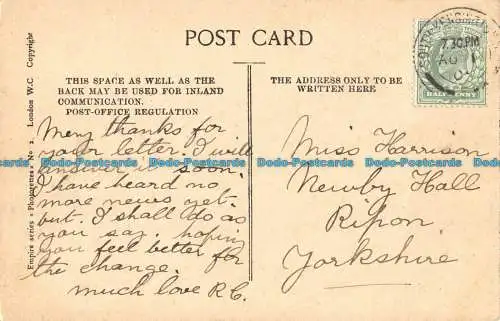 POST CARD
THIS SPACE AS WELL AS THE
BACK MAY BE USED FOR INLAND
COMMUNICATION.
POST-OFFICE REGULATION
THE ADDRESS ONLY TO BE
WRITTEN HERE
Empire series • Photogenettes • No 2. London W.C Copyright
Many thanks for
your letter. I will
answer it soon.
I have heard no
more news yet-
but. I shall do as
you say. hoping
you feel better for
the change.
much love R.C.
Miss Harrison
Newby Hall
Ripon
Yorkshire
7.30 PM
AU
HALFPENNY
Dodo-Postcards Dodo-Postcards Dodo-Postcards Dodo-Postcards